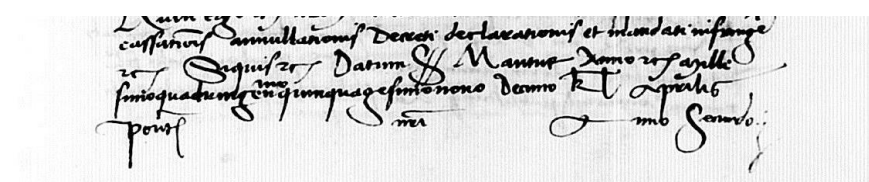 cassationis annullationis Decreti declarationis et mandati infringe
rc Siquis rc Datum Mantue Anno rc mille
simoquadringen^(mo)quinquagesimonono Decimo kl Aprilis
Pont nri Anno Secundo